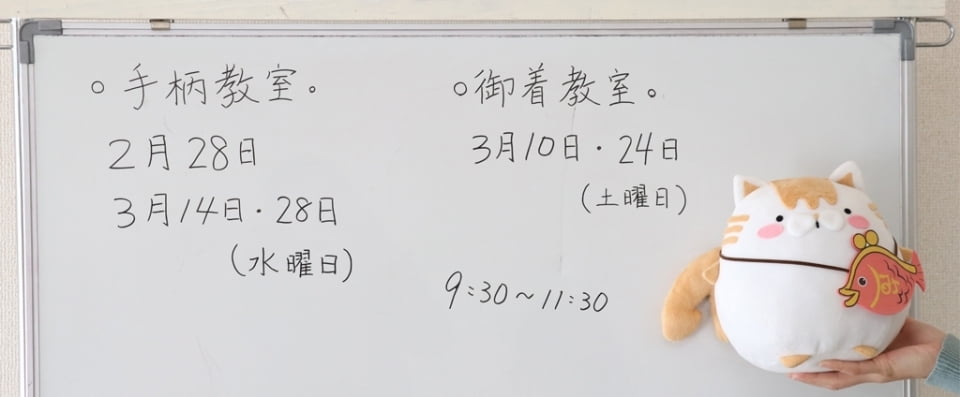 ○手柄教室。
2月28日
3月14日・28日
(水曜日)
○御着教室。
3月10日・24日
(土曜日)
9:30～11:30